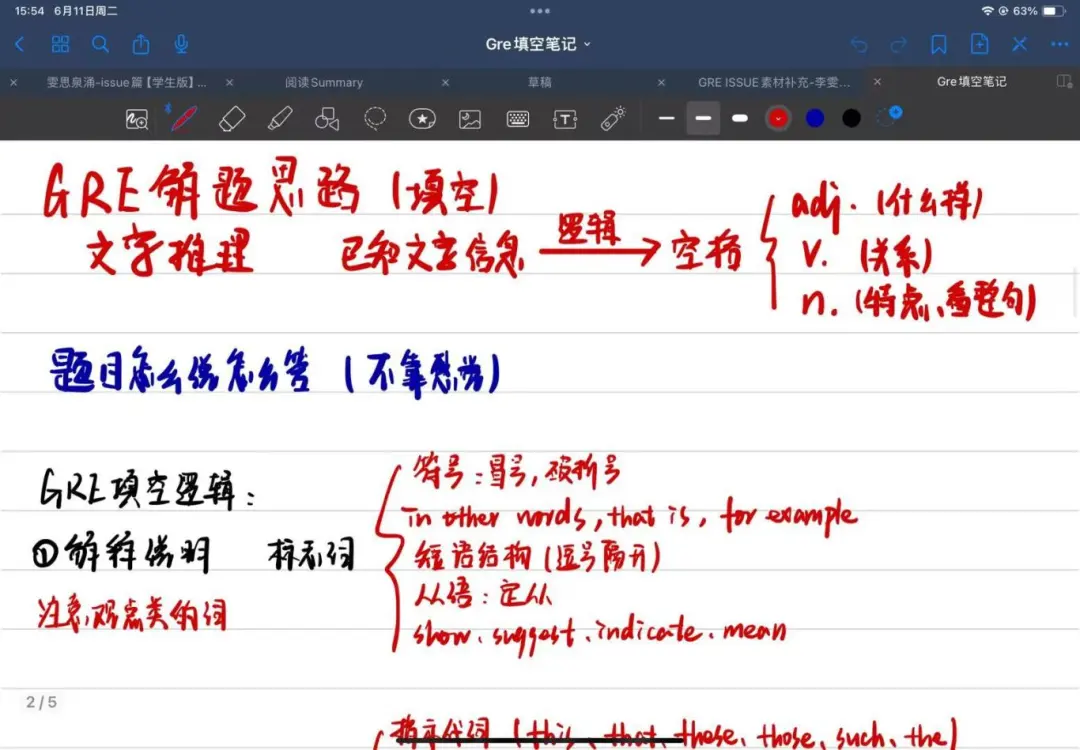 15:54 6月11日周二
63%
Gre填空笔记
雯思泉涌-issue篇【学生版】...
阅读Summary
草稿
GRE ISSUE素材补充-李雯...
Gre填空笔记
GRE解题思路（填空）
文字推理 已知文字信息 逻辑 空格
adj. （什么样）
v. （关系）
n. （特点、看整句）
题目怎么说怎么答（不靠感觉）
GRE填空逻辑：
①解释说明 标志词
注意观点类的词
符号：冒号，破折号
in other words, that is, for example
短语结构（逗号隔开）
从语：定从
show、suggest、indicate、mean
2 / 5
指示代词（this、that、these、those、such、the）